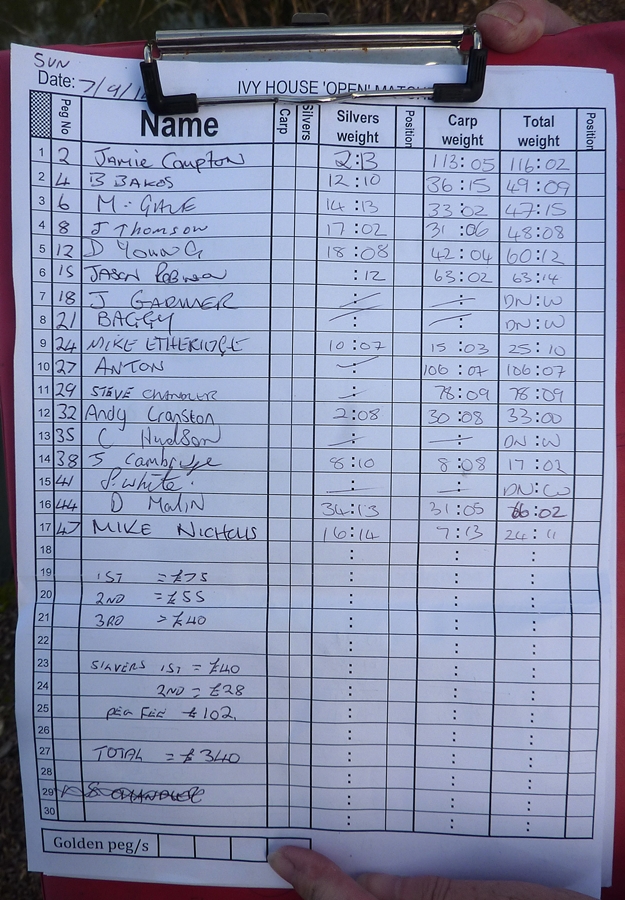 SUN
Date: 7/9/1
IVY HOUSE 'OPEN' MATCH
Peg No Name Carp Silvers Silvers weight Position Carp weight Total weight Position
1 2 Jamie Compton 2:13 113:05 116:02
2 4 B BAKOS 12:10 36:15 49:09
3 6 M. GALE 14:13 33:02 47:15
4 8 J Thomson 17:02 31:06 48:08
5 12 D YOUNG 18:08 42:04 60:12
6 15 JASON ROBINSON :12 63:02 63:14
7 18 J GARNER : : DN:W
8 21 BAGGY : : DN:W
9 24 MIKE ETHERIDGE 10:07 15:03 25:10
10 27 ANTON : 106:07 106:07
11 29 STEVE CHANDLER : 78:09 78:09
12 32 Andy Cranston 2:08 30:08 33:00
13 35 C Hudson : : DN:W
14 38 S Cambridge 8:10 8:08 17:02
15 41 S. White. : : DN:W
16 44 D Malin 34:13 31:05 66:02
17 47 MIKE NICHOLLS 16:14 7:13 24:11
18 : : :
19 1ST = £75 : : :
20 2ND = £55 : : :
21 3RD = £40 : : :
22 : : :
23 SILVERS 1ST = £40 : : :
24 2ND = £28 : : :
25 PEG FEE £102. : : :
26 : : :
27 TOTAL = £340 : : :
28 : : :
29 S CHANDLER : : :
30 : : :
Golden peg/s